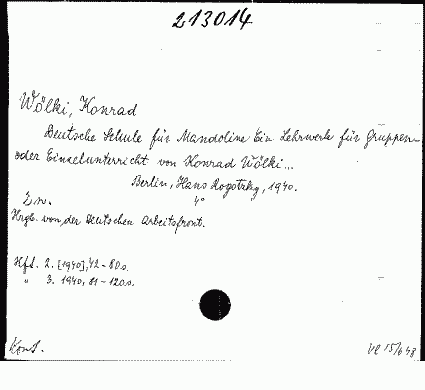 213014
Wölki, Konrad
Deutsche Schule für Mandoline Ein Lehrwerk für Gruppen-
oder Einzelunterricht von Konrad Wölki...
Berlin, Hans Rogotzky, 1940.
4°
Zn.
Hrgb. von der Deutschen Arbeitsfront.
Hft. 2. [1940], 42-80 s.
" 3. 1940, 81-120 s.
Kont.